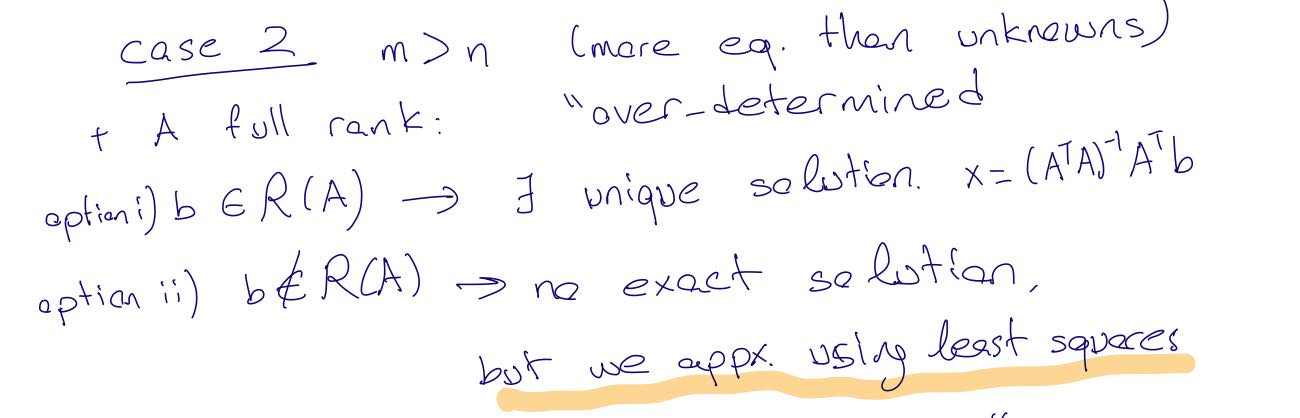 case 2 m > n (more eq. than unknowns)
+ A full rank: "over-determined
option i) b ∈ R(A) → ∃ unique solution. x = (AᵀA)⁻¹Aᵀb
option ii) b ∉ R(A) → no exact solution,
but we appx. using least squares